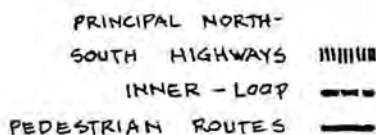 PRINCIPAL NORTH-
SOUTH HIGHWAYS
INNER-LOOP
PEDESTRIAN ROUTES